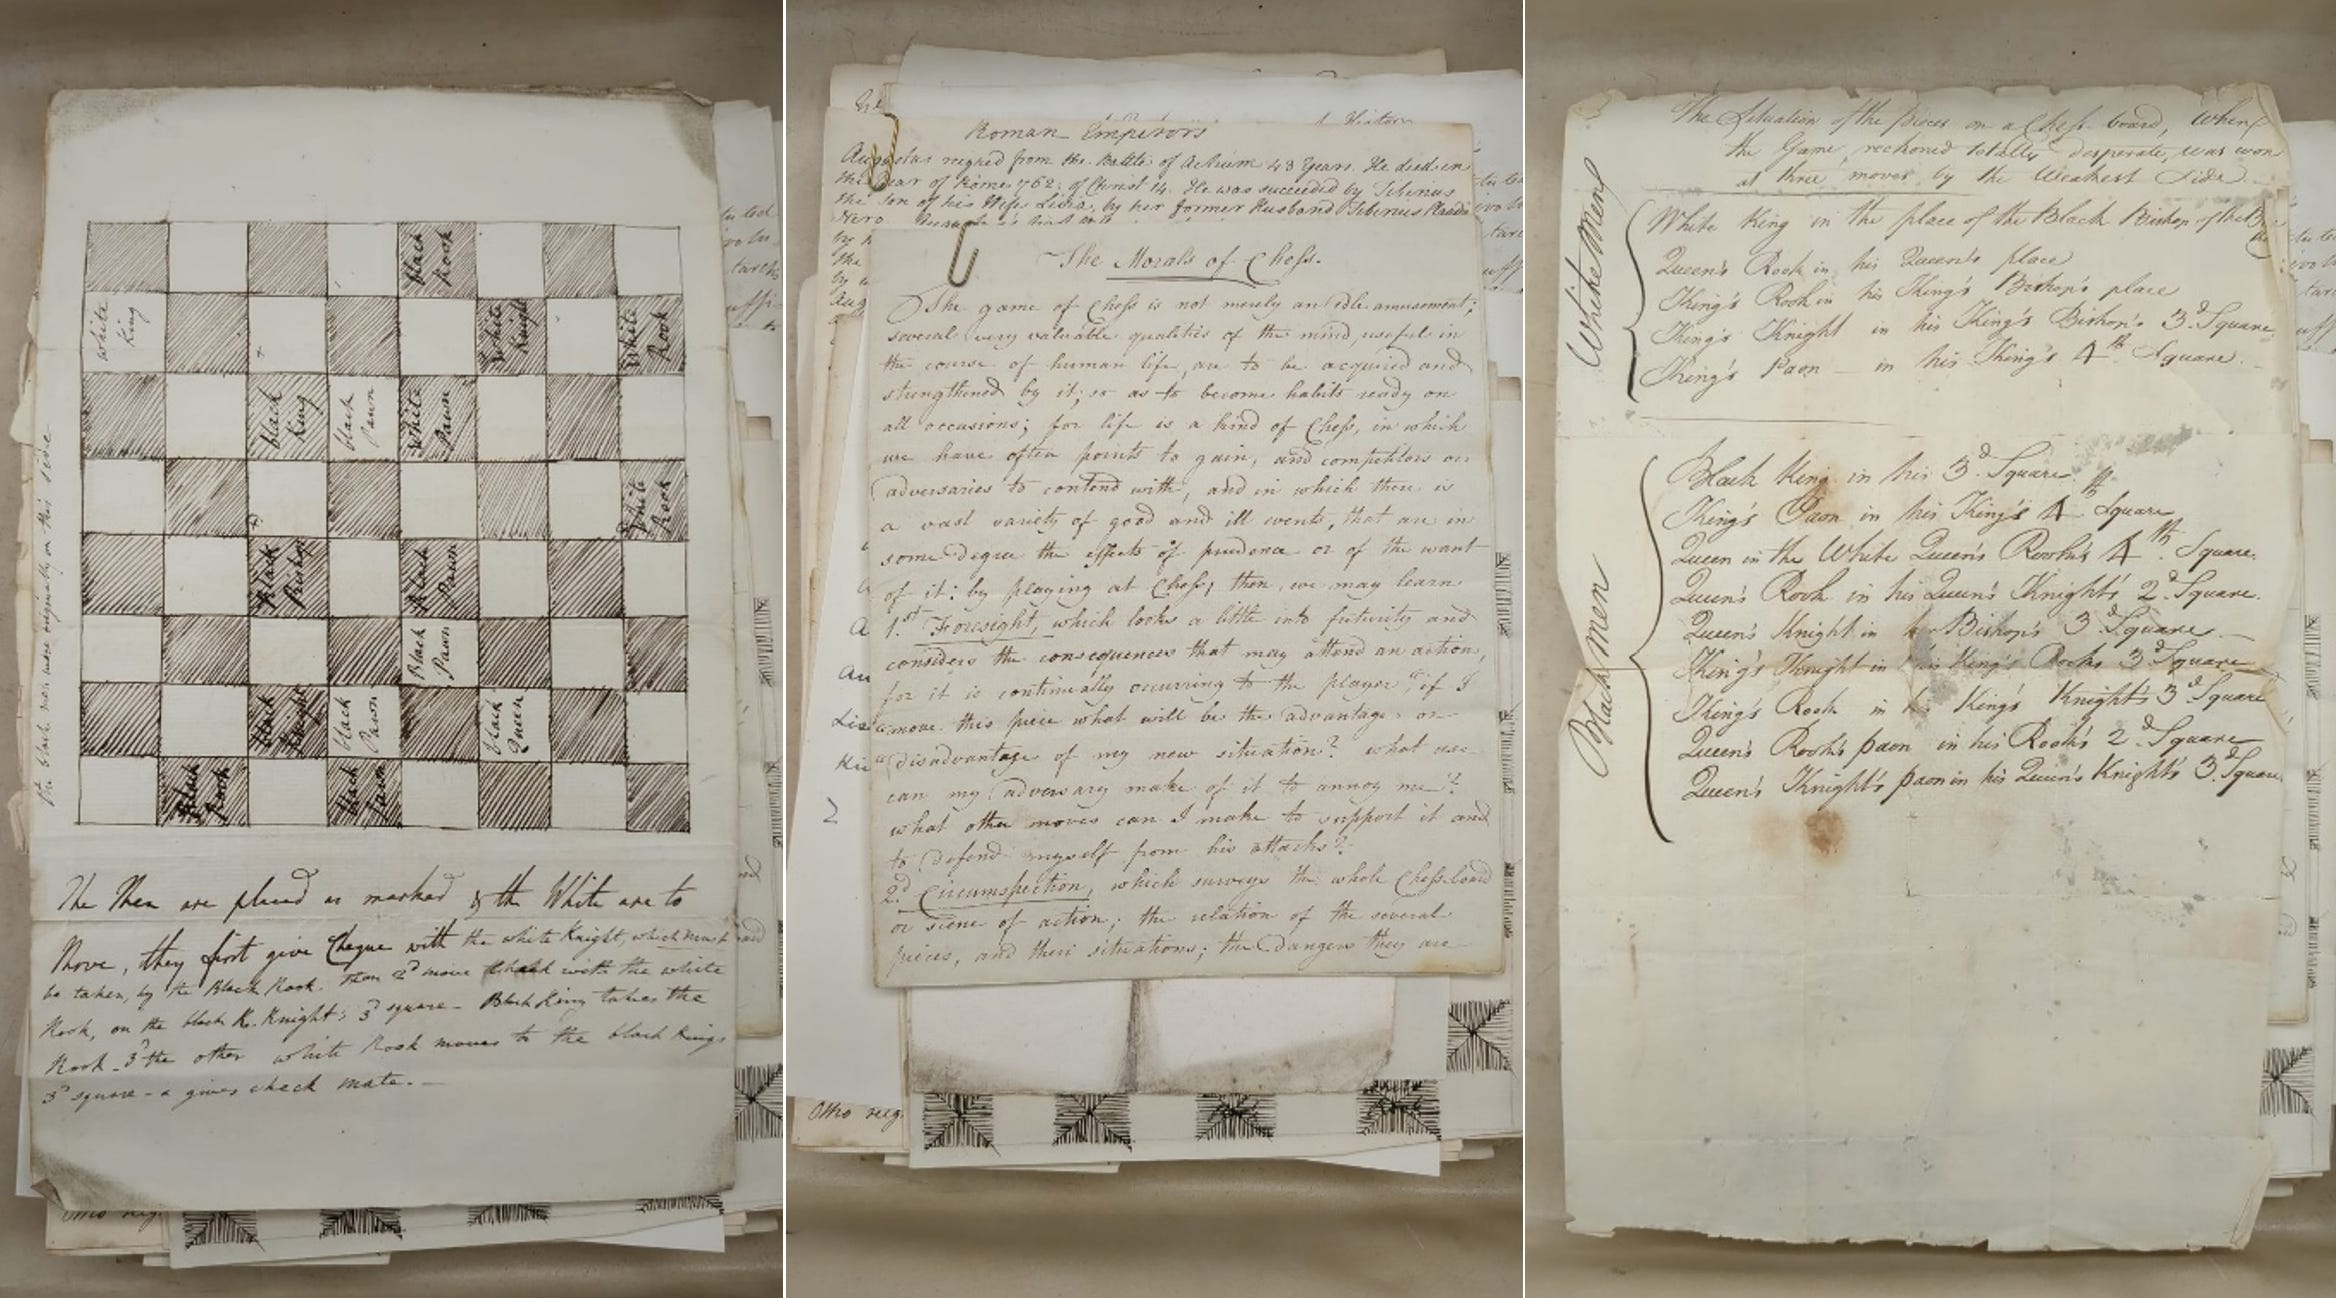 the black men were originally on this side
Black Rook
White King
White Knight
White Rook
black King
black Pawn
White Pawn
White Rook
Black Bishop
Black Pawn
Black Pawn
black Knight
black Pawn
black Queen
Black Rook
black Pawn
The Men are placed as marked & the White are to
Move, they first give Cheque with the white Knight, which must
be taken, by the Black Rook. then 2d move Check with the white
Rook, on the black K. Knight's 3d square - Black King takes the
Rook - 3d the other white Rook moves to the black Kings
3d square - & gives check mate. -
Otho reig
Roman Emperors
Augustus reigned from the Battle of Actium 43 Years. He died in
the Year of Rome 762: of Christ 14. He was succeeded by Tiberius
the Son of his Wife Livia, by her former Husband Tiberius
Nero
The Morals of Chess.
The game of Chess is not merely an idle amusement;
several very valuable qualities of the mind, useful in
the course of human life, are to be acquired and
strengthened by it; so as to become habits ready on
all occasions; for life is a kind of Chess, in which
we have often points to gain, and competitors or
adversaries to contend with, and in which there is
a vast variety of good and ill events, that are in
some degree the effects of prudence or of the want
of it: by playing at Chess, then, we may learn
1.st Foresight, which looks a little into futurity and
considers the consequences that may attend an action,
for it is continually occurring to the player, "if I
"move this piece what will be the advantage or
"disadvantage of my new situation? what use
can my adversary make of it to annoy me?
what other moves can I make to support it and
to defend myself from his attacks?
2d Circumspection, which surveys the whole Chess board
or scene of action; the relation of the several
pieces, and their situations; the dangers they are
2
Otho reig
The Situation of the pieces on a Chess-board, when
the Game, reckoned totally desperate, was won
at three moves by the Weakest Side.
White Men
White King in the place of the Black Bishop of the
Queen's Rook in his Queen's place
King's Rook in his King's Bishop's place
King's Knight in his King's Bishop's 3d Square
King's Paon - in his King's 4th Square.
Black men
Black King in his 3d Square.
King's Paon in his King's 4th Square
Queen in the White Queen's Rook's 4th Square.
Queen's Rook in his Queen's Knight's 2d Square.
Queen's Knight in her Bishop's 3d Square.
King's Knight in his King's Rooks 3d Square
King's Rook in his King's Knight's 3d Square
Queen's Rook's paon in his Rook's 2d Square
Queen's Knight's paon in his Queen's Knight's 3d Square